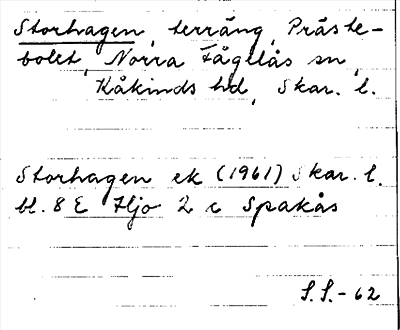 Storhagen, terräng, Präste-
bolet, Norra Fågelås sn,
Kåkinds hd, Skar. l.
Storhagen ek (1961) Skar. l.
bl. 8 E Hjo 2 c Spakås
S.S.-62